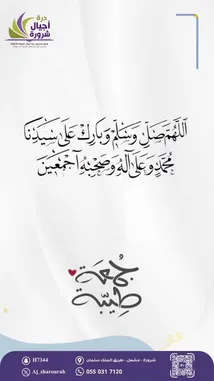 درة
أجيال
شرورة
اللَّهُمَّ صَلِّ وَسَلِّمْ وَبَارِكْ عَلَىٰ سَيِّدِنَا
مُحَمَّدٍ وَعَلَىٰ آلِهِ وَصَحْبِهِ أَجْمَعِينَ
جمعة
طيبة
شرورة - مشعل - طريق الملك سلمان
H7344
055 031 7120
Aj_sharourah